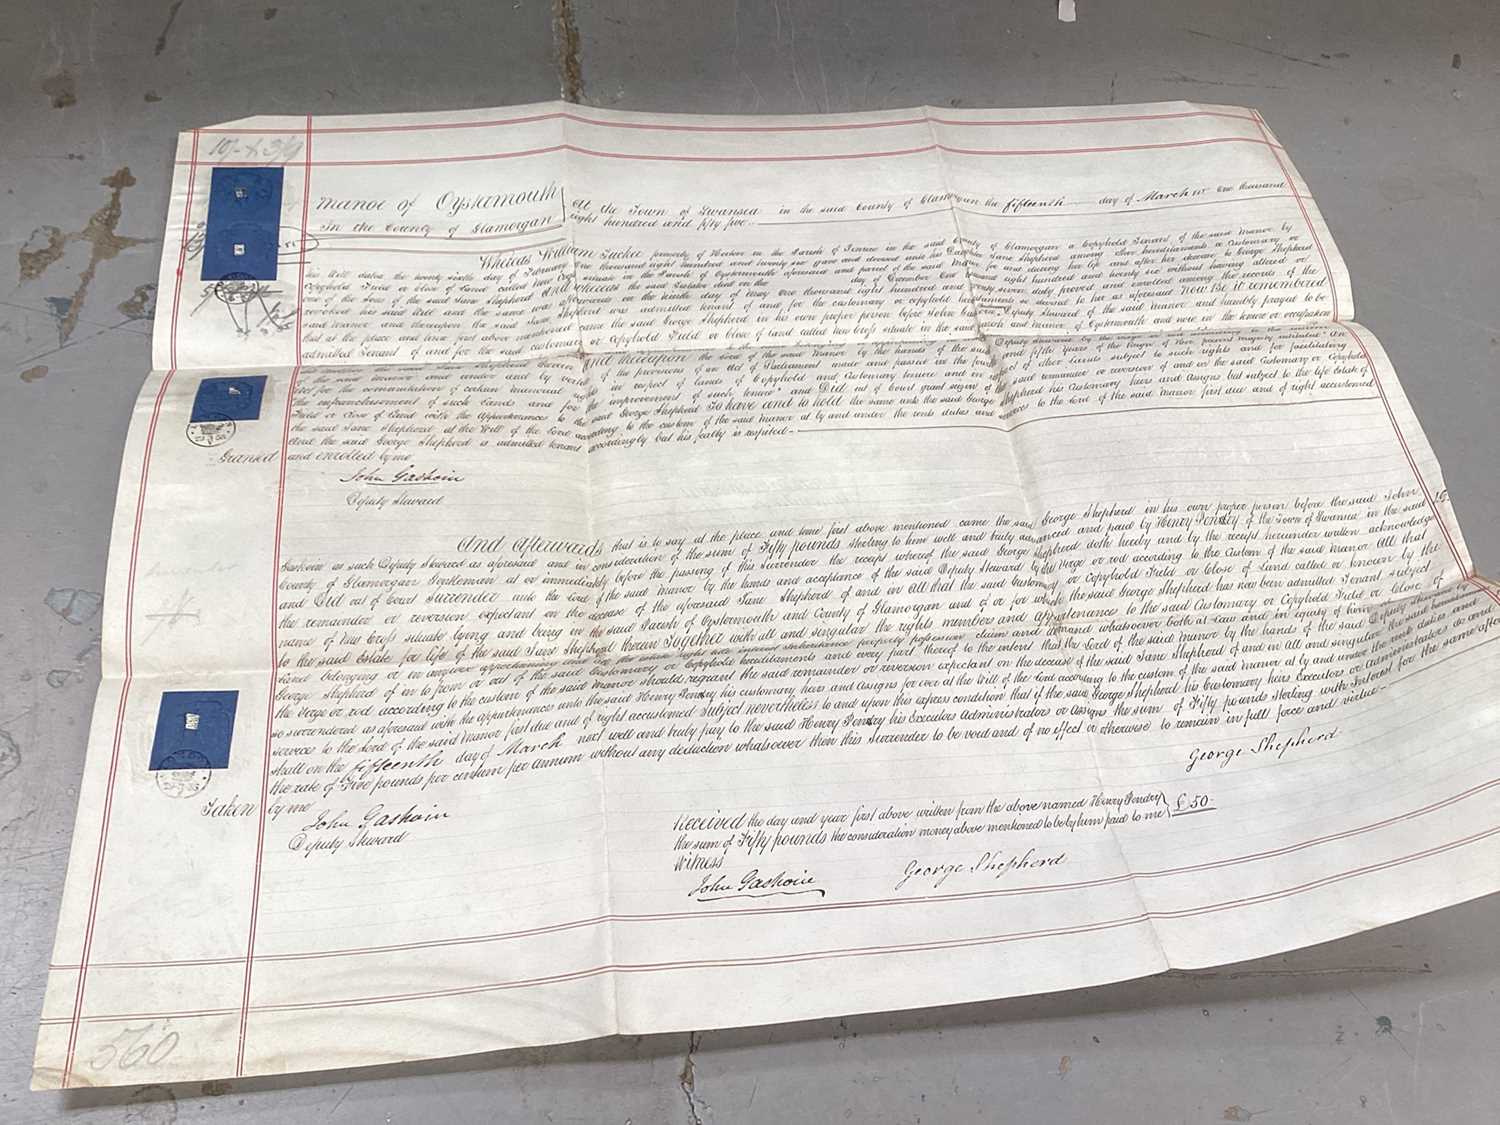 10/- & 3/9
Manor of Oystermouth
In the County of Glamorgan
At the Town of Swansea in the said County of Glamorgan the fifteenth day of March in One thousand
eight hundred and fifty five
Whereas William Tucker formerly of Horton in the Parish of in the said County of Glamorgan a Copyhold Tenant of the said Manor by
his Will dated the twenty sixth day of February One thousand eight hundred and twenty six gave and devised unto his Daughter Jane Shepherd among other hereditaments a Customary or
Copyhold Field or close of Land called New Cross situate in the Parish of Oystermouth aforesaid and parcel of the said Manor for and during her life and after her decease to George Shepherd
one of the Sons of the said Jane Shepherd And whereas the said Testator died on the day of December One thousand eight hundred and twenty six without having altered or
revoked his said Will and the same was afterwards on the ninth day of May one thousand eight hundred and twenty seven duly proved and enrolled among the records of the
said Manor and thereupon the said Jane Shepherd was admitted tenant of and for the customary or copyhold hereditaments so devised to her as aforesaid Now be it remembered
that at the place and time first above mentioned came the said George Shepherd in his own proper person before John Gaskoin Deputy Steward of the said Manor and humbly prayed to be
admitted Tenant of and for the said customary or Copyhold Field or Close of land called New Cross situate in the said parish and Manor of Oystermouth and now in the tenure or occupation
And thereupon the Lord of the said Manor by the hands of the said
of the provisions of an Act of Parliament made and passed in the fourth and fifth years of the reign of Her present Majesty intituled "An
Act for commutation of certain manorial rights in respect of lands of Copyhold and Customary tenure and in respect of other Lands subject to such rights and for facilitating
the enfranchisement of such Lands and for the improvement of such tenure" and Did out of Court grant seizin of the said remainder or reversion of and in the said Customary or Copyhold
Field or Close of Land with the Appurtenances to the said George Shepherd To have and to hold the same unto the said George Shepherd his Customary heirs and Assigns but subject to the life Estate of
the said Jane Shepherd at the Will of the Lord according to the custom of the said Manor at by and under the rents duties and services to the Lord of the said Manor first due and of right accustomed
And the said George Shepherd is admitted tenant accordingly but his fealty is respited
Granted and enrolled by me
John Gaskoin
Deputy Steward
And Afterwards that is to say at the place and time first above mentioned came the said George Shepherd in his own proper person before the said John
Gaskoin as such Deputy Steward as aforesaid and in consideration of the sum of Fifty pounds sterling to him well and truly advanced and paid by Henry Pendry of the Town of Swansea in the said
County of Glamorgan Gentleman at or immediately before the passing of this Surrender the receipt whereof the said George Shepherd doth hereby and by the receipt hereunder written acknowledge
and Did out of Court Surrender into the Lord of the said Manor by the hands and acceptance of the said Deputy Steward by the Verge or rod according to the Custom of the said Manor All that
the remainder or reversion expectant on the decease of the aforesaid Jane Shepherd of and in All that the said Customary or Copyhold Field or Close of Land called or known by the
name of New Cross situate lying and being in the said Parish of Oystermouth and County of Glamorgan and of or for which the said George Shepherd has now been admitted Tenant subject
to the said Estate for life of the said Jane Shepherd therein Together with all and singular the rights members and Appurtenances to the said Customary or Copyhold Field or Close of
Land belonging or in anywise appertaining And all the estate right title interest inheritance property possession claim and demand whatsoever both at Law and in equity of him
George Shepherd of in to from or out of the said Customary or Copyhold hereditaments and every part thereof to the intent that the Lord of the said Manor by the hands of the said Deputy Steward by
the Verge or rod according to the custom of the said Manor should regrant the said remainder or reversion expectant on the decease of the said Jane Shepherd of and in All and singular the said hereditaments
so surrendered as aforesaid with the appurtenances unto the said Henry Pendry his customary heirs and Assigns for ever at the Will of the Lord according to the custom of the said Manor at by and under the rents duties and
services to the Lord of the said Manor first due and of right accustomed Subject nevertheless to and upon this express condition that if the said George Shepherd his Customary heirs Executors or Administrators do and
shall on the fifteenth day of March next well and truly pay to the said Henry Pendry his Executors Administrators or Assigns the sum of Fifty pounds sterling with Interest for the same after
the rate of Five pounds per centum per Annum without any deduction whatsoever then this Surrender to be void and of no effect or otherwise to remain in full force and virtue
George Shepherd
Taken by me
John Gaskoin
Deputy Steward
Received the day and year first above written from the above named Henry Pendry
the sum of Fifty pounds the consideration money above mentioned to be by him paid to me £50-
Witness
John Gaskoin
George Shepherd
560